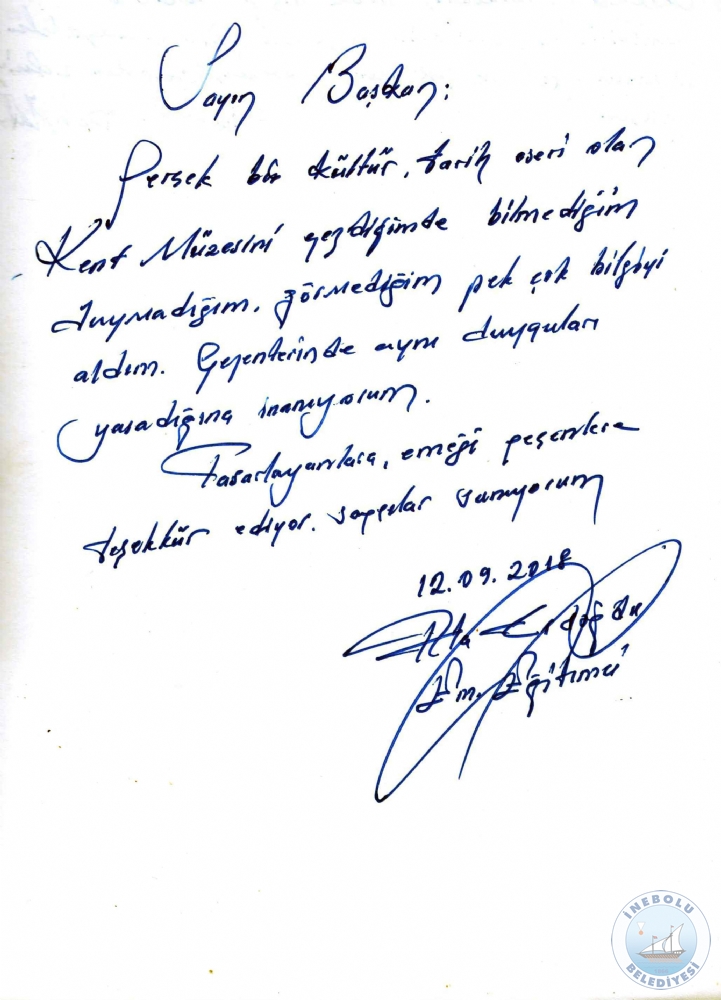 Sayın Başkan:
Gerçek bir kültür, tarih eseri olan
Kent Müzesini gezdiğimde bilmediğim
duymadığım, görmediğim pek çok bilgiyi
aldım. Gezenlerinde aynı duyguları
yaşadığına inanıyorum.
Tasarlayanlara, emeği geçenlere
teşekkür ediyor. saygılar sunuyorum
12.09.2018
Erdoğdu
Em. Eğitimci
İNEBOLU
BELEDİYESİ